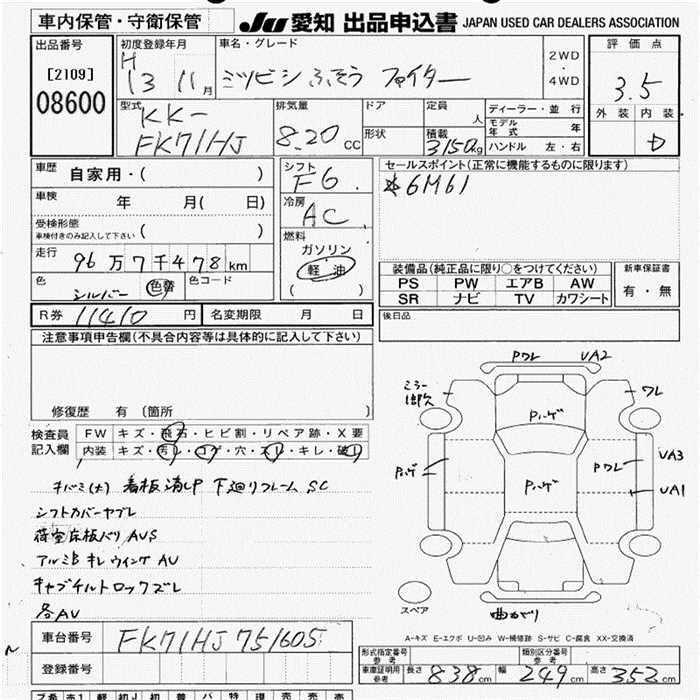 車内保管・守衛保管
JU 愛知 出品申込書 JAPAN USED CAR DEALERS ASSOCIATION
出品番号
[2109]
08600
初度登録年月
H
13 11月
車名・グレード
ミツビシ ふそう ファイター
2WD
・
4WD
評価点
3.5
外装 内装
D
型式
KK-
FK71HJ
排気量
8.20 CC
ドア
形状
定員
人
積載
3150kg
ディーラー・並行
モデル年式 年
ハンドル 左・右
車歴 自家用・( )
車検 年 月( 日)
受検形態
車検付きのみ記入して下さい ( )
走行 96万7千478km
色 シルバー 色替 色コード
シフト
F6
冷房
AC
燃料
ガソリン
軽油
( )
セールスポイント(正常に機能するものに限ります)
*6M61
装備品(純正品に限り○をつけてください)
PS PW エアB AW
SR ナビ TV カワシート
新車保証書
有・無
後日品
R券 11410 円 名変期限 月 日
注意事項申告欄(不具合内容等は具体的に記入して下さい)
修復歴 有 (箇所 )
検査員
記入欄
FW キズ・飛石・ヒビ割・リペア跡・X要
内装 キズ・汚レ・コゲ・穴・スレ・キレ・破レ
キバミ(大) 看板消し 下廻りフレーム SC
シフトカバーヤブレ
荷室床板バリ AVS
アルミB キレ ウィング AU
キャブチルトロックズレ
各AU
車台番号 FK71HJ 751605
登録番号
PワレUA2
ミラー
ワレ
Pハゲ
Pハゲ
Pハゲ
Pワレ
UA3
UA1
スペア
A-キズ E-エクボ U-凹み W-補修跡 S-サビ C-腐食 XX-交換済
形式指定番号
参考
類別区分番号
参考
車庫証明用
参考
長さ 838cm 幅 249cm 高さ 352cm